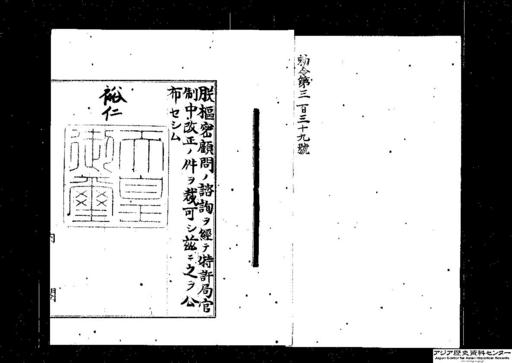 勅令第三百三十九號
朕樞密顧問ノ諮詢ヲ經テ特許局官
制中改正ノ件ヲ裁可シ茲ニ之ヲ公
布セシム
裕仁
天皇
御璽
内
閣
アジア歴史資料センター
Japan Center for Asian Historical Records